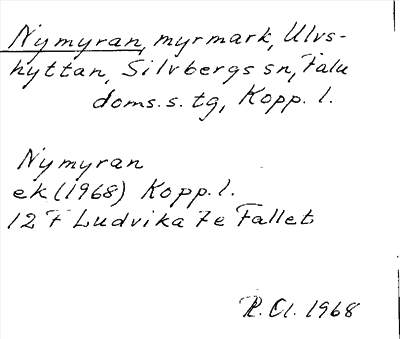 Nymyran, myrmark, Ulvs-
hyttan, Silvbergs sn, Falu
doms. s. tg, Kopp. l.
Nymyran
ek (1968) Kopp. l.
12 F Ludvika 7e Fallet
1968